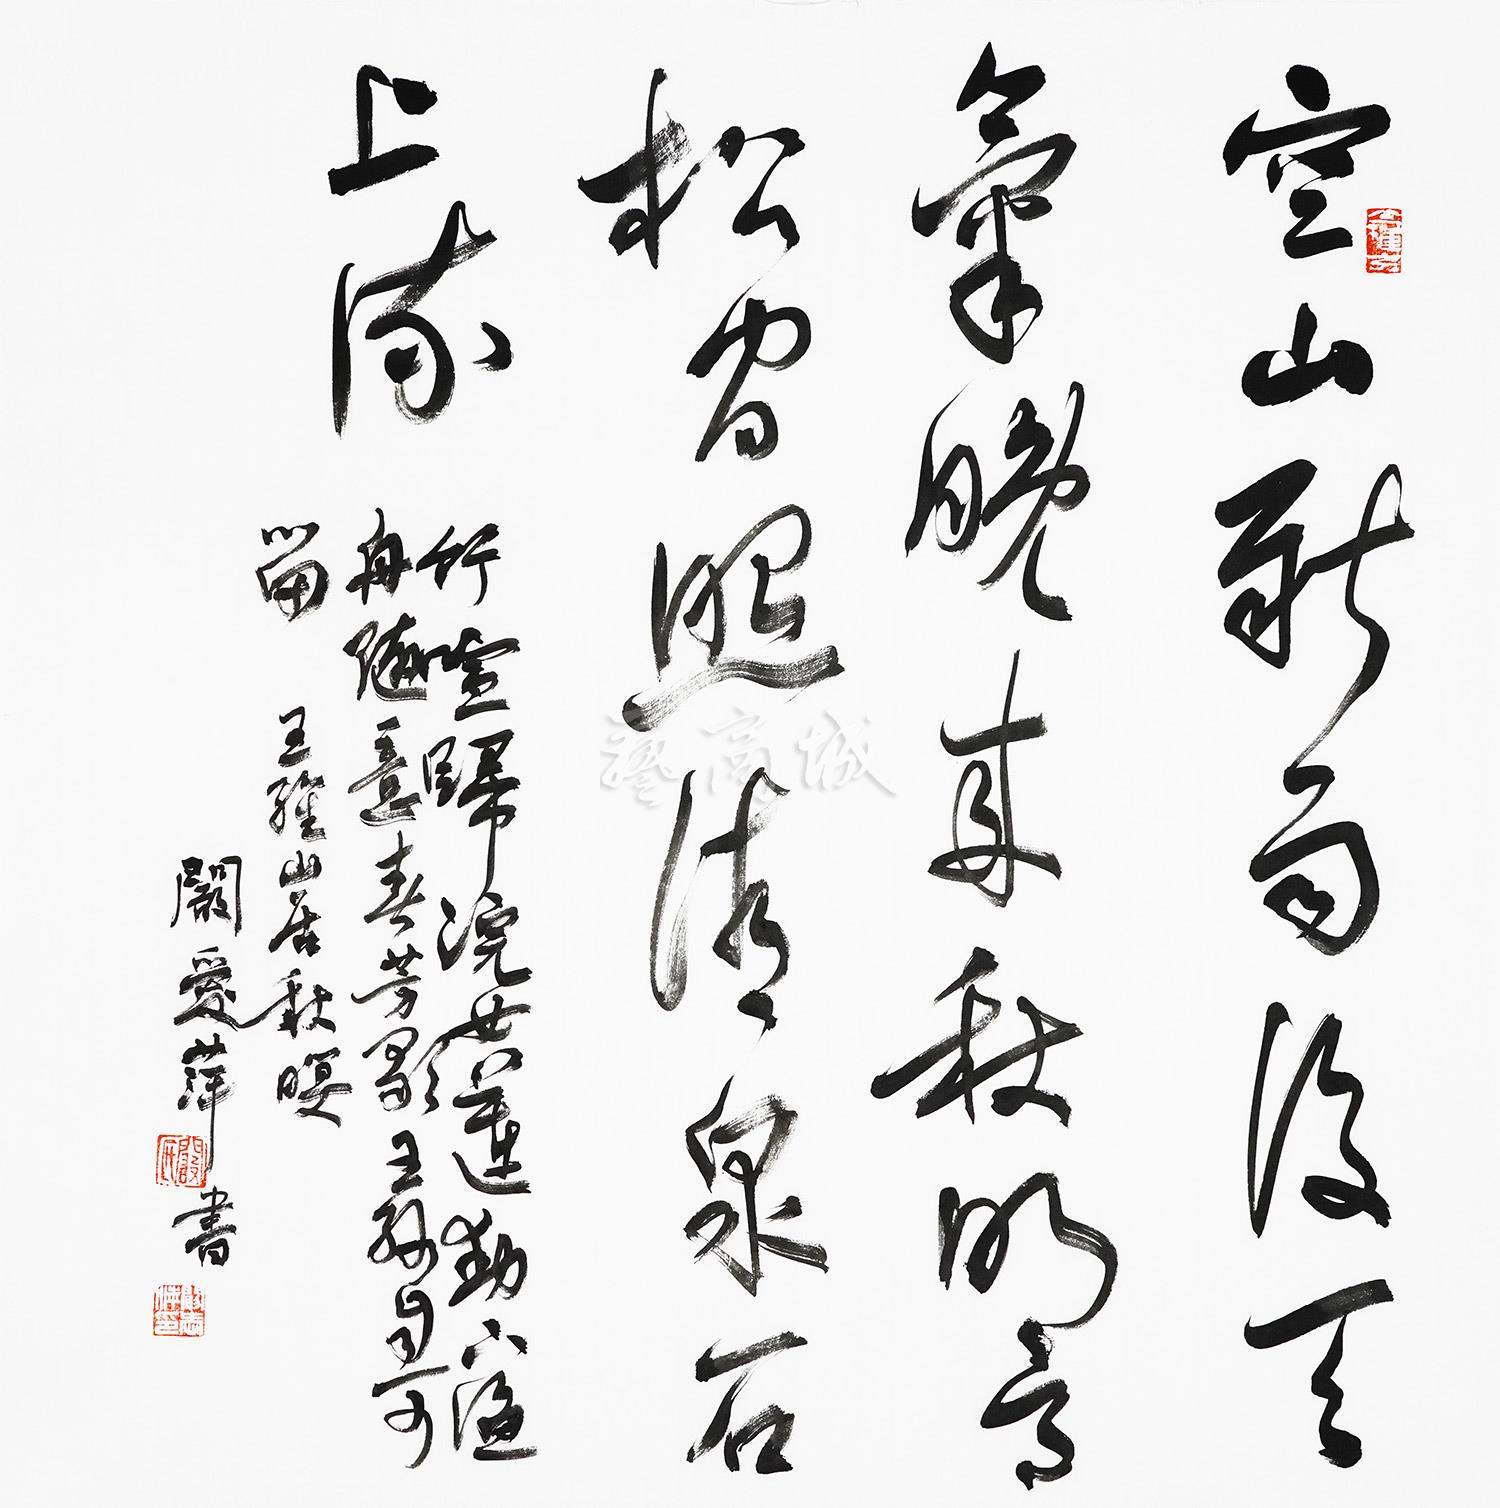 空山新雨後天
氣晚來秋明月
松間照清泉石
上流
竹喧歸浣女蓮動下漁
舟隨意春芳歇王孫自可
留 王維山居秋暝
闞愛萍書
藝商城